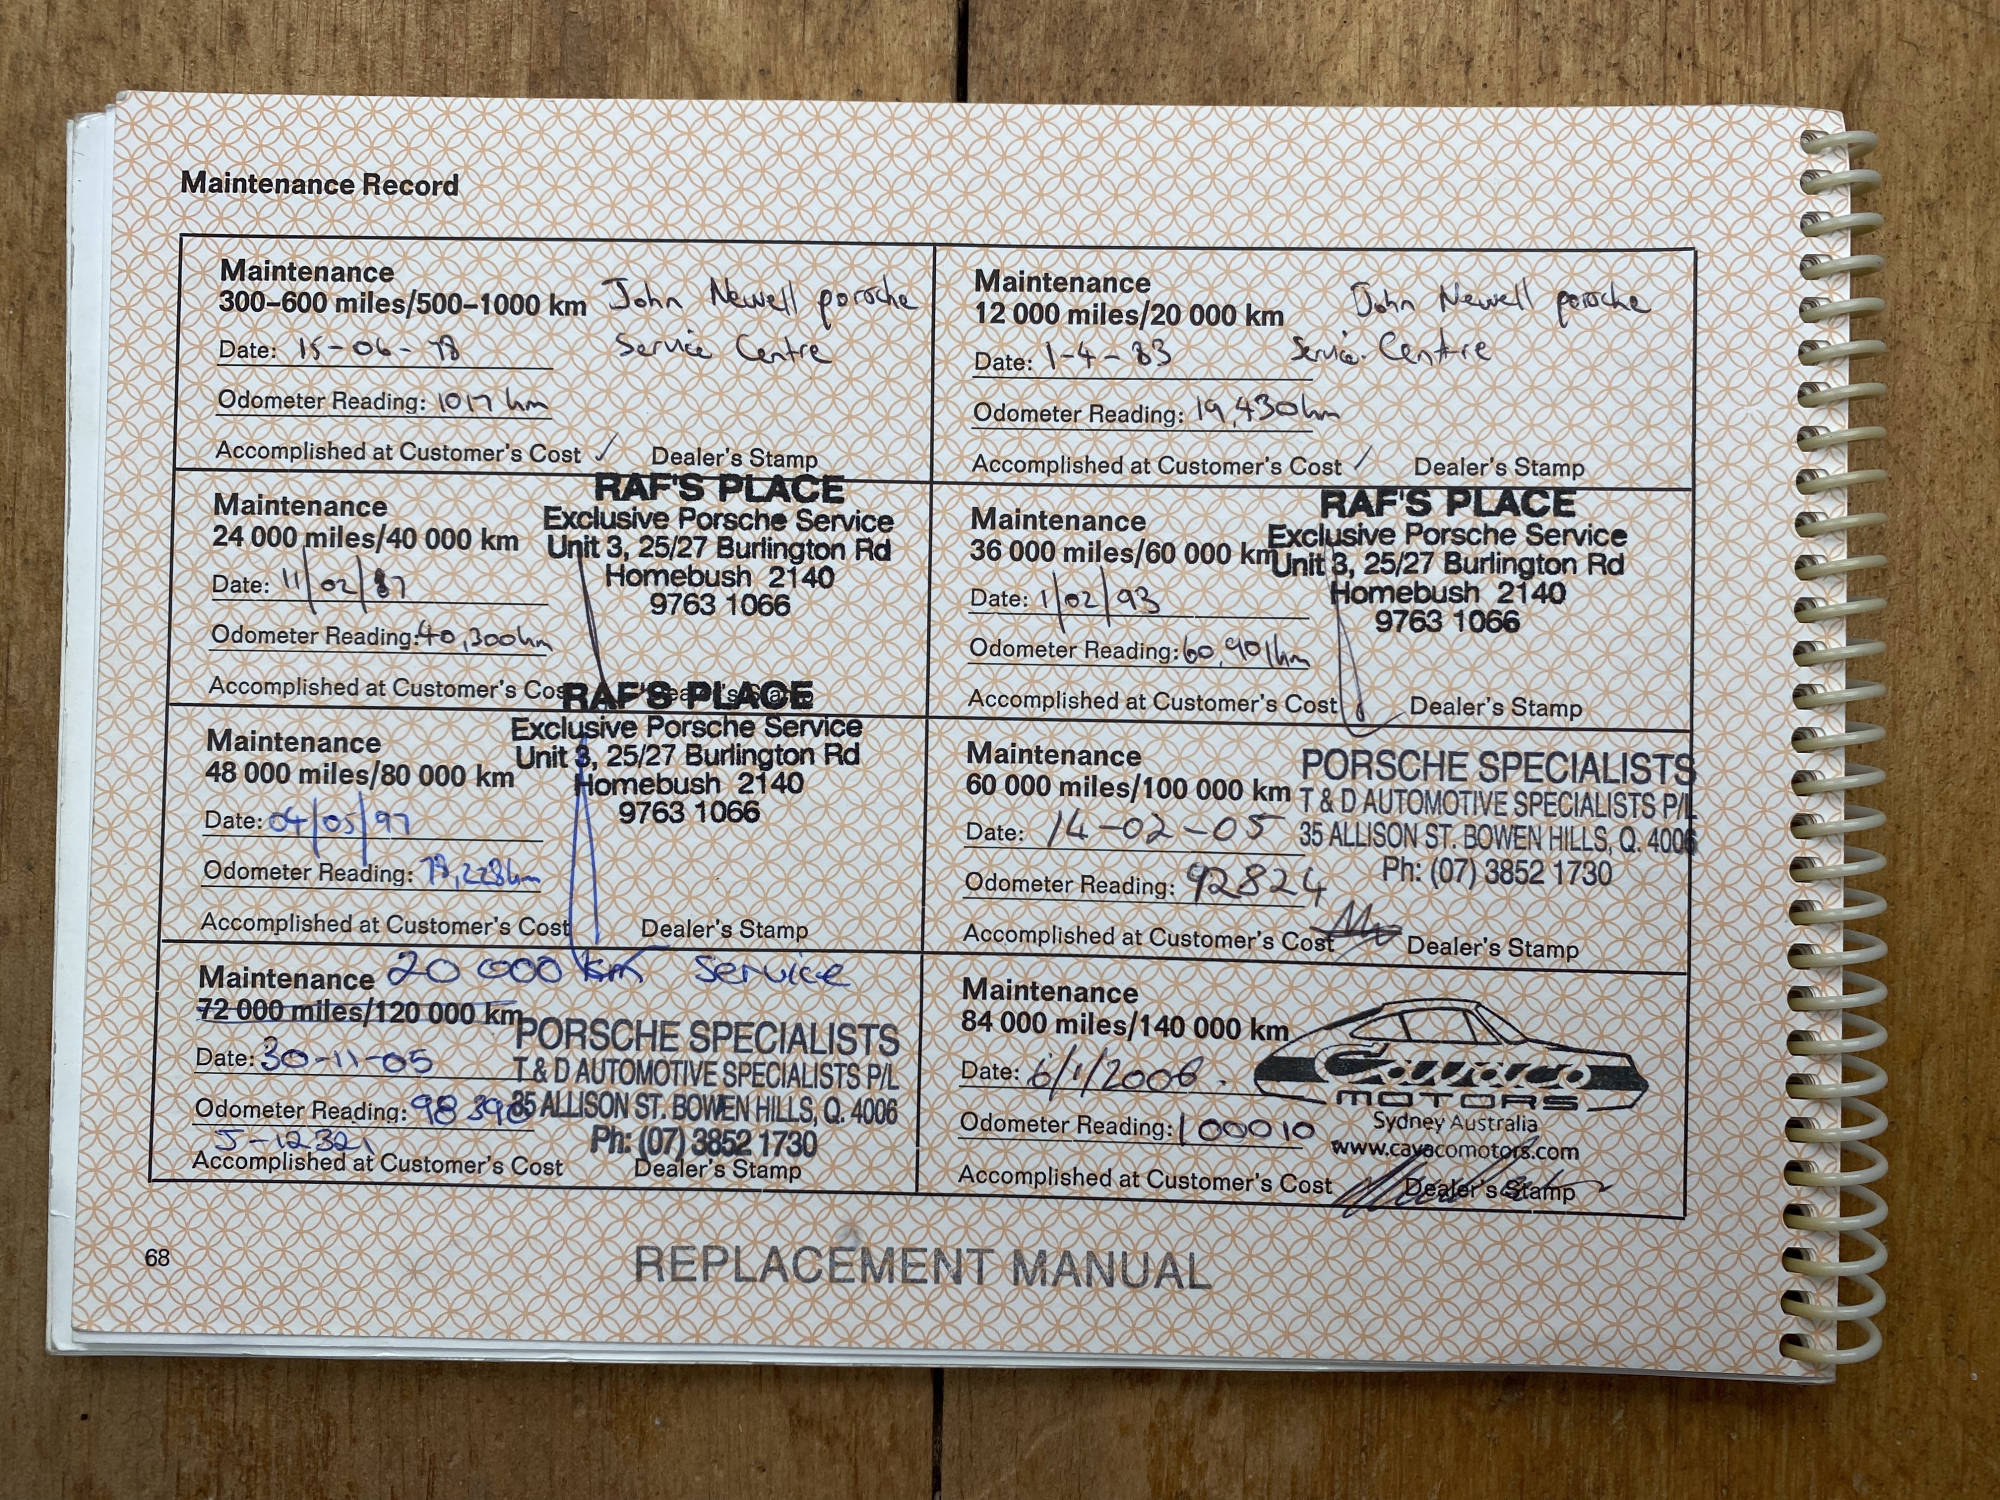 Maintenance Record
Maintenance
300–600 miles/500–1000 km
John Newell porsche
Service Centre
Date: 15-06-78
Odometer Reading: 1017 km
Accomplished at Customer's Cost ✓
Dealer's Stamp
Maintenance
12 000 miles/20 000 km
John Newell porsche
Service Centre
Date: 1-4-83
Odometer Reading: 19,430km
Accomplished at Customer's Cost ✓
Dealer's Stamp
Maintenance
24 000 miles/40 000 km
Date: 11/02/87
Odometer Reading: 40,300km
Accomplished at Customer's Cos
Dealer's Stamp
RAF'S PLACE
Exclusive Porsche Service
Unit 3, 25/27 Burlington Rd
Homebush 2140
9763 1066
Maintenance
36 000 miles/60 000 km
Date: 1/02/93
Odometer Reading: 60,901km
Accomplished at Customer's Cost
Dealer's Stamp
RAF'S PLACE
Exclusive Porsche Service
Unit 3, 25/27 Burlington Rd
Homebush 2140
9763 1066
Maintenance
48 000 miles/80 000 km
Date: 04/05/97
Odometer Reading: 78,228km
Accomplished at Customer's Cost
Dealer's Stamp
RAF'S PLACE
Exclusive Porsche Service
Unit 3, 25/27 Burlington Rd
Homebush 2140
9763 1066
Maintenance
60 000 miles/100 000 km
Date: 14-02-05
Odometer Reading: 92824
Accomplished at Customer's Cost
Dealer's Stamp
PORSCHE SPECIALISTS
T & D AUTOMOTIVE SPECIALISTS P/L
35 ALLISON ST. BOWEN HILLS, Q. 4006
Ph: (07) 3852 1730
Maintenance 20 000 km Service
72 000 miles/120 000 km
Date: 30-11-05
Odometer Reading: 98 398
J-12321
Accomplished at Customer's Cost
Dealer's Stamp
PORSCHE SPECIALISTS
T & D AUTOMOTIVE SPECIALISTS P/L
35 ALLISON ST. BOWEN HILLS, Q. 4006
Ph: (07) 3852 1730
Maintenance
84 000 miles/140 000 km
Date: 6/1/2006.
Odometer Reading: 100010
Accomplished at Customer's Cost
Dealer's Stamp
Cavaco
MOTORS
Sydney Australia
www.cavacomotors.com
68
REPLACEMENT MANUAL